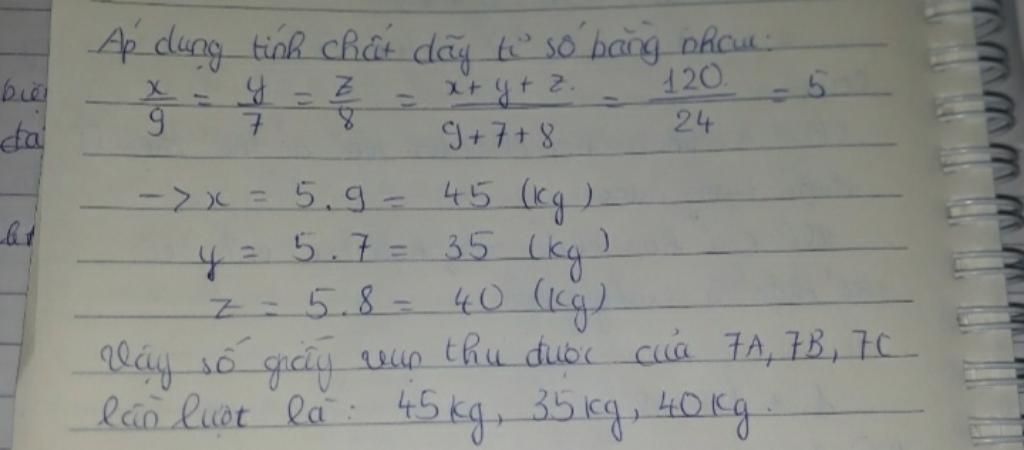 Áp dụng tính chất dãy tỉ số bằng nhau:
x/9 = y/7 = z/8 = x+y+z/9+7+8 = 120/24 = 5
-> x = 5.9 = 45 (kg)
y = 5.7 = 35 (kg)
z = 5.8 = 40 (kg)
Vậy số giấy vụn thu được của 7A, 7B, 7C
lần lượt là: 45kg, 35kg, 40kg.